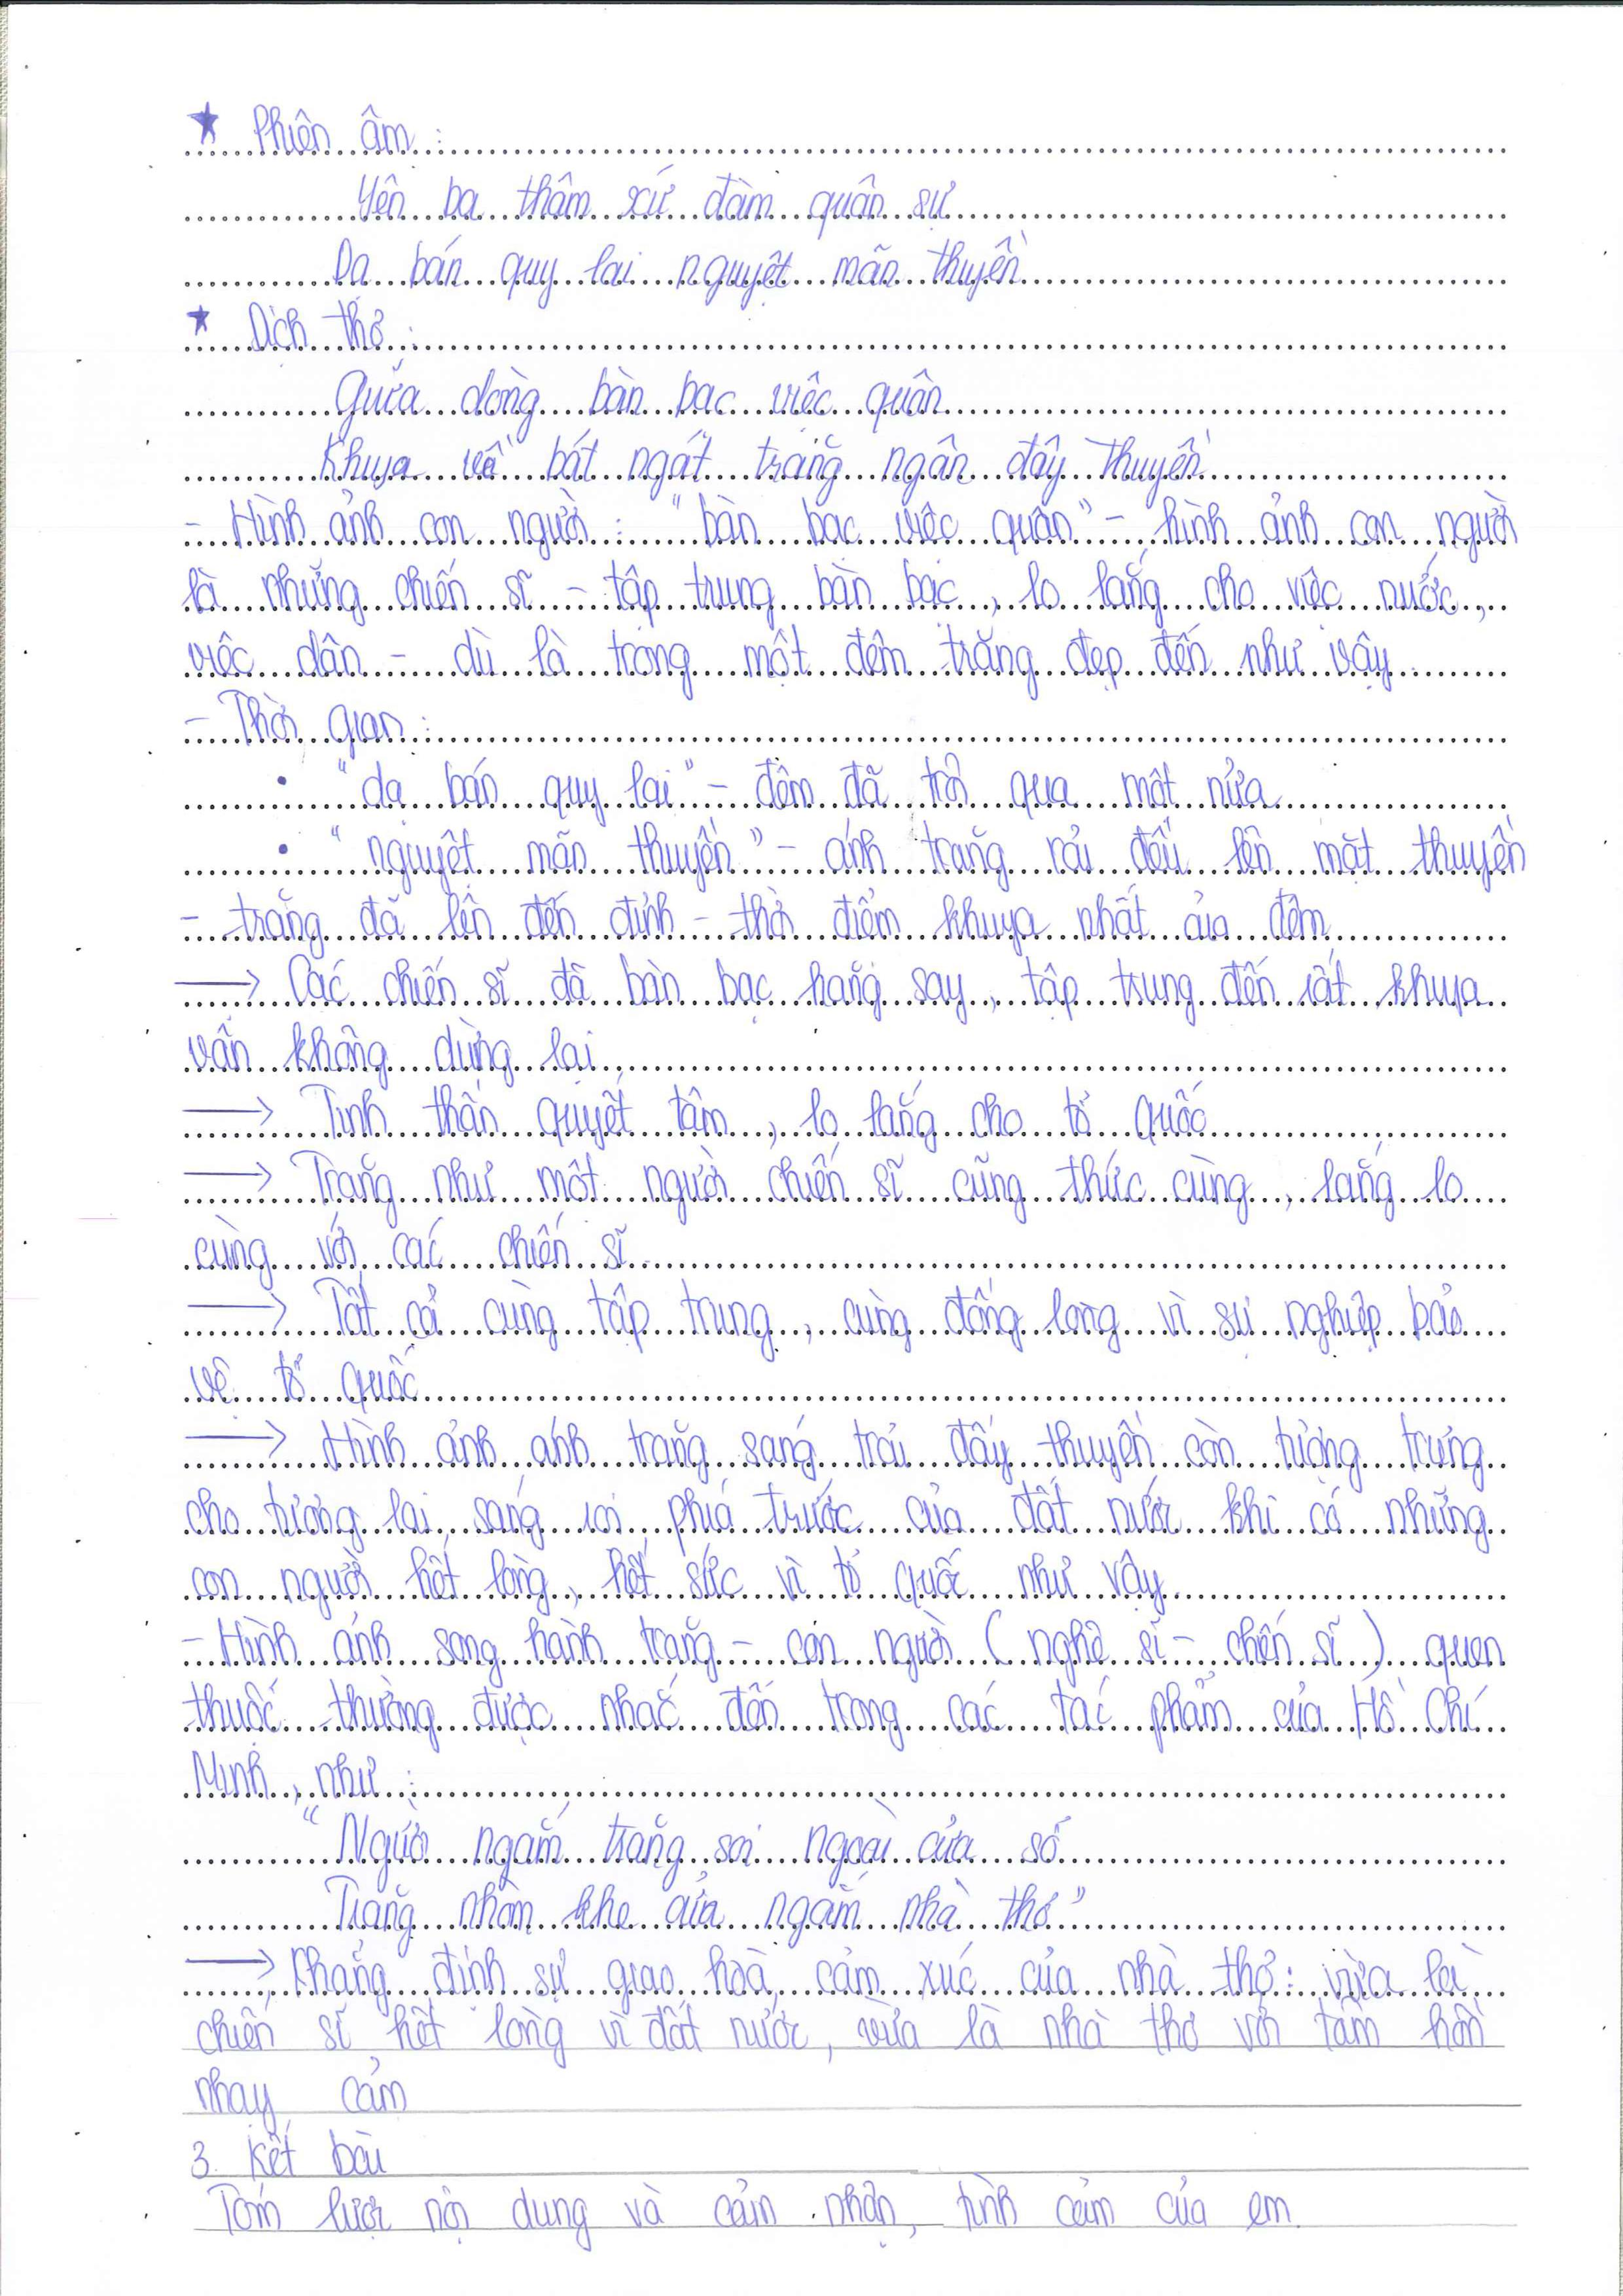 ★ Phiên âm :
Yên ba thâm xứ đàm quân sự
Dạ bán quy lai nguyệt mãn thuyền
★ Dịch thơ :
Giữa dòng bàn bạc việc quân
Khuya về bát ngát trăng ngân đầy thuyền
- Hình ảnh con người : "bàn bạc việc quân" - hình ảnh con người
là những chiến sĩ - tập trung bàn bạc , lo lắng cho việc nước ,
việc dân - dù là trong một đêm trăng đẹp đến như vậy
- Thời gian :
• "dạ bán quy lai" - đêm đã trôi qua một nửa
• "nguyệt mãn thuyền" - ánh trăng rải đều lên mặt thuyền
- trăng đã lên đến đỉnh - thời điểm khuya nhất của đêm
→ Các chiến sĩ đã bàn bạc hăng say , tập trung đến rất khuya
vẫn không dừng lại
→ Tinh thần quyết tâm , lo lắng cho tổ quốc
→ Trăng như một người chiến sĩ cũng thức cùng , lắng lo
cùng với các chiến sĩ
→ Tất cả cùng tập trung , cùng đồng lòng vì sự nghiệp bảo
vệ tổ quốc
→ Hình ảnh ánh trăng sáng trải đầy thuyền còn tượng trưng
cho tương lai sáng rọi phía trước của đất nước khi có những
con người hết lòng , hết sức vì tổ quốc như vậy
- Hình ảnh song hành trăng - con người ( nghệ sĩ - chiến sĩ ) quen
thuộc thường được nhắc đến trong các tác phẩm của Hồ Chí
Minh , như :
"Người ngắm trăng soi ngoài cửa sổ
Trăng nhòm khe cửa ngắm nhà thơ"
→ Khẳng định sự giao hoà cảm xúc của nhà thơ : vừa là
chiến sĩ hết lòng vì đất nước , vừa là nhà thơ với tâm hồn
nhạy cảm
3. Kết bài
Tóm lược nội dung và cảm nhận , tình cảm của em